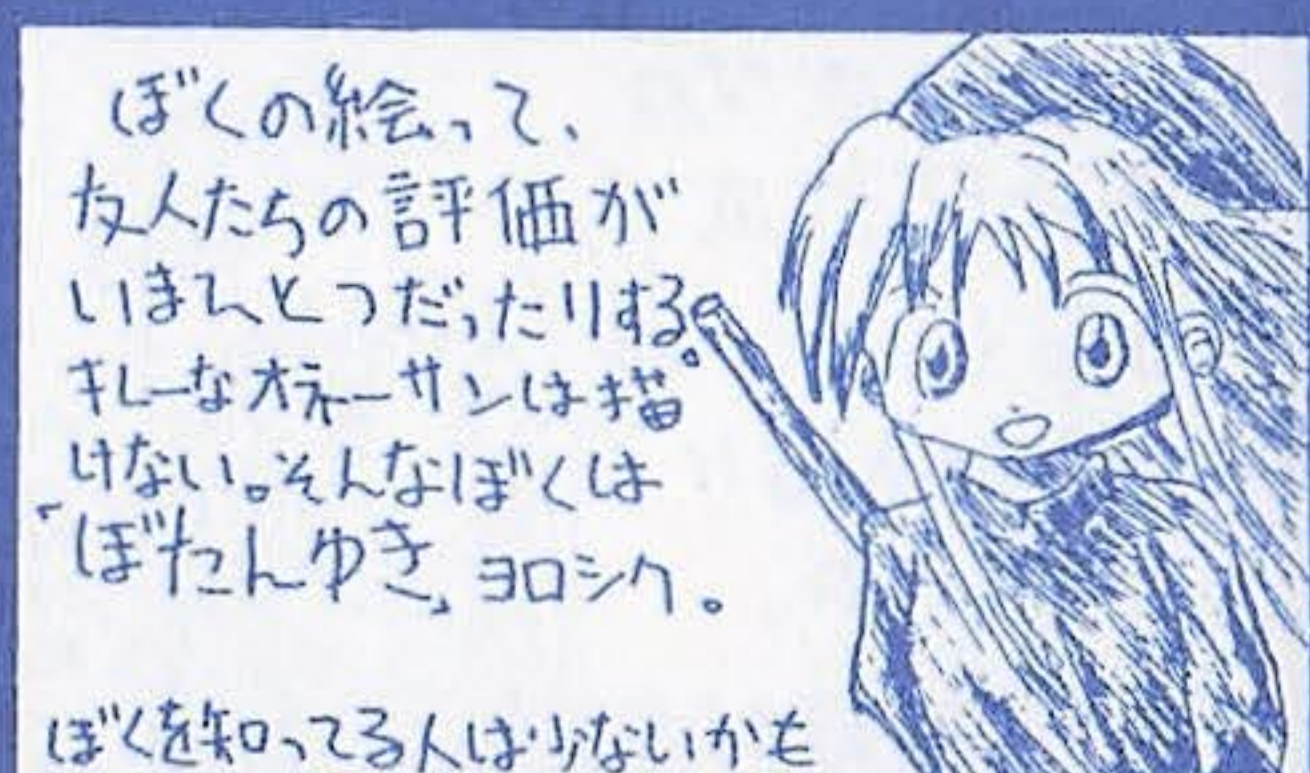 ぼくの絵って、
友人たちの評価が
いまひとつだったりする。
キレーなオネーサンは描
けない。そんなぼくは
「ぼたんゆき」ヨロシク。
ぼくを知ってる人は少ないかも